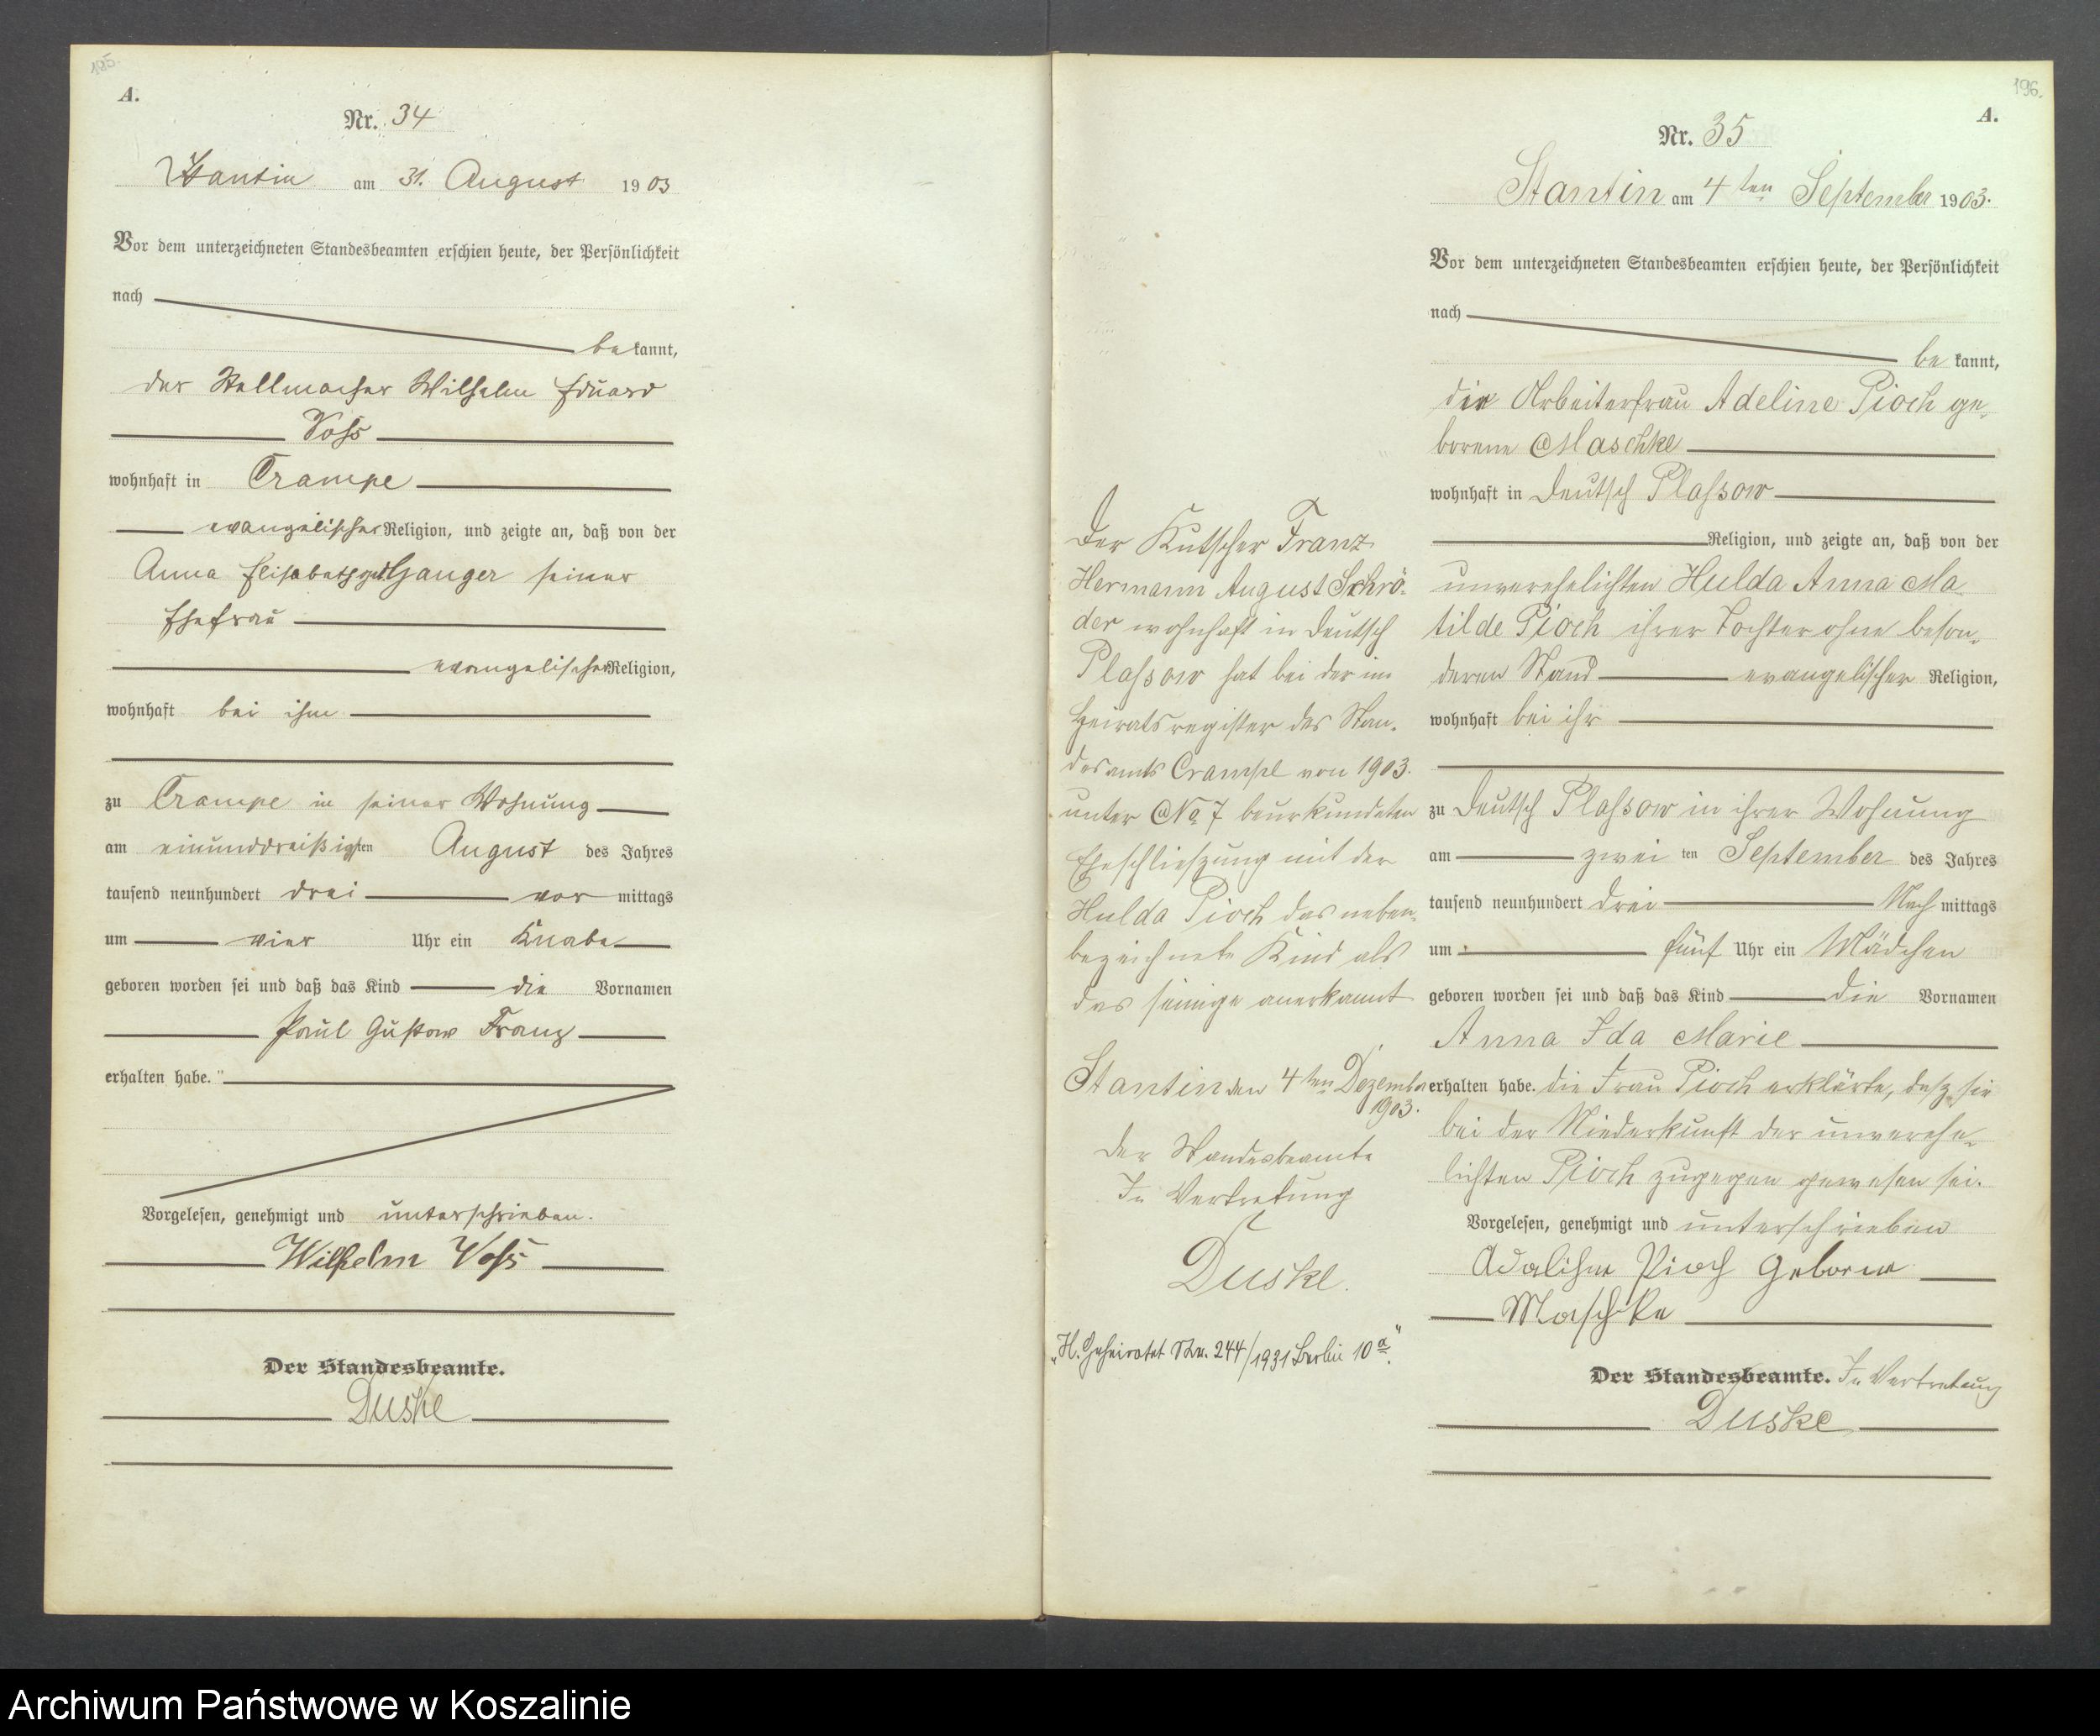 195.
A.
Nr. 34
Stantin am 31. August 1903
Vor dem unterzeichneten Standesbeamten erschien heute, der Persönlichkeit
nach
be kannt,
der Stellmacher Wilhelm Eduard
Voß
wohnhaft in Crampe
evangelischer Religion, und zeigte an, daß von der
Anna Elisabeth geb. Ganger seiner
Ehefrau
evangelischer Religion,
wohnhaft bei ihm
zu Crampe in seiner Wohnung
am einunddreißigten August des Jahres
tausend neunhundert drei vor mittags
um vier Uhr ein Knabe
geboren worden sei und daß das Kind die Vornamen
Paul Gustav Franz
erhalten habe."
Vorgelesen, genehmigt und unterschrieben.
Wilhelm Voß
Der Standesbeamte.
Duske
Der Kutscher Franz
Hermann August Schrö-
der wohnhaft in Deutsch
Plaßow hat bei der im
Heiratsregister des Stan-
desamts Crampe von 1903.
unter No 7 beurkundeten
Eheschließung mit der
Hulda Pioch das neben-
bezeichnete Kind als
das seinige anerkannt
Stantin den 4ten Dezember
1903.
Der Standesbeamte
In Vertretung
Duske.
"H. Geheiratet Nr. 244/1931 Berlin 10a."
196.
A.
Nr. 35
Stantin am 4ten September 1903.
Vor dem unterzeichneten Standesbeamten erschien heute, der Persönlichkeit
nach
be kannt,
die Arbeiterfrau Adeline Pioch ge-
borene Maschke
wohnhaft in Deutsch Plaßow
Religion, und zeigte an, daß von der
unverehelichten Hulda Anna Ma-
tilde Pioch ihrer Tochter ohne beson-
deren Stand evangelischer Religion,
wohnhaft bei ihr
zu Deutsch Plaßow in ihrer Wohnung
am zwei ten September des Jahres
tausend neunhundert drei Nach mittags
um fünf Uhr ein Mädchen
geboren worden sei und daß das Kind die Vornamen
Anna Ida Marie
erhalten habe. die Frau Pioch erklärte, daß sie
bei der Niederkunft der unverehe-
lichten Pioch zugegen gewesen sei.
Vorgelesen, genehmigt und unterschrieben
Adaline Pioch Geborne
Maschke
Der Standesbeamte. In Vertretung
Duske
Archiwum Państwowe w Koszalinie